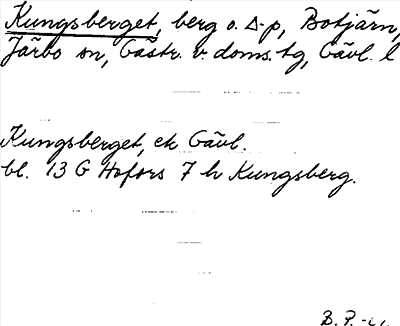 Kungsberget, berg o. Δ-p, Botjärn,
Järbo sn, Gästr. v. doms.tg, Gävl. l
Kungsberget, ek Gävl.
bl. 13 G Hofors 7 h Kungsberg.
B. P.